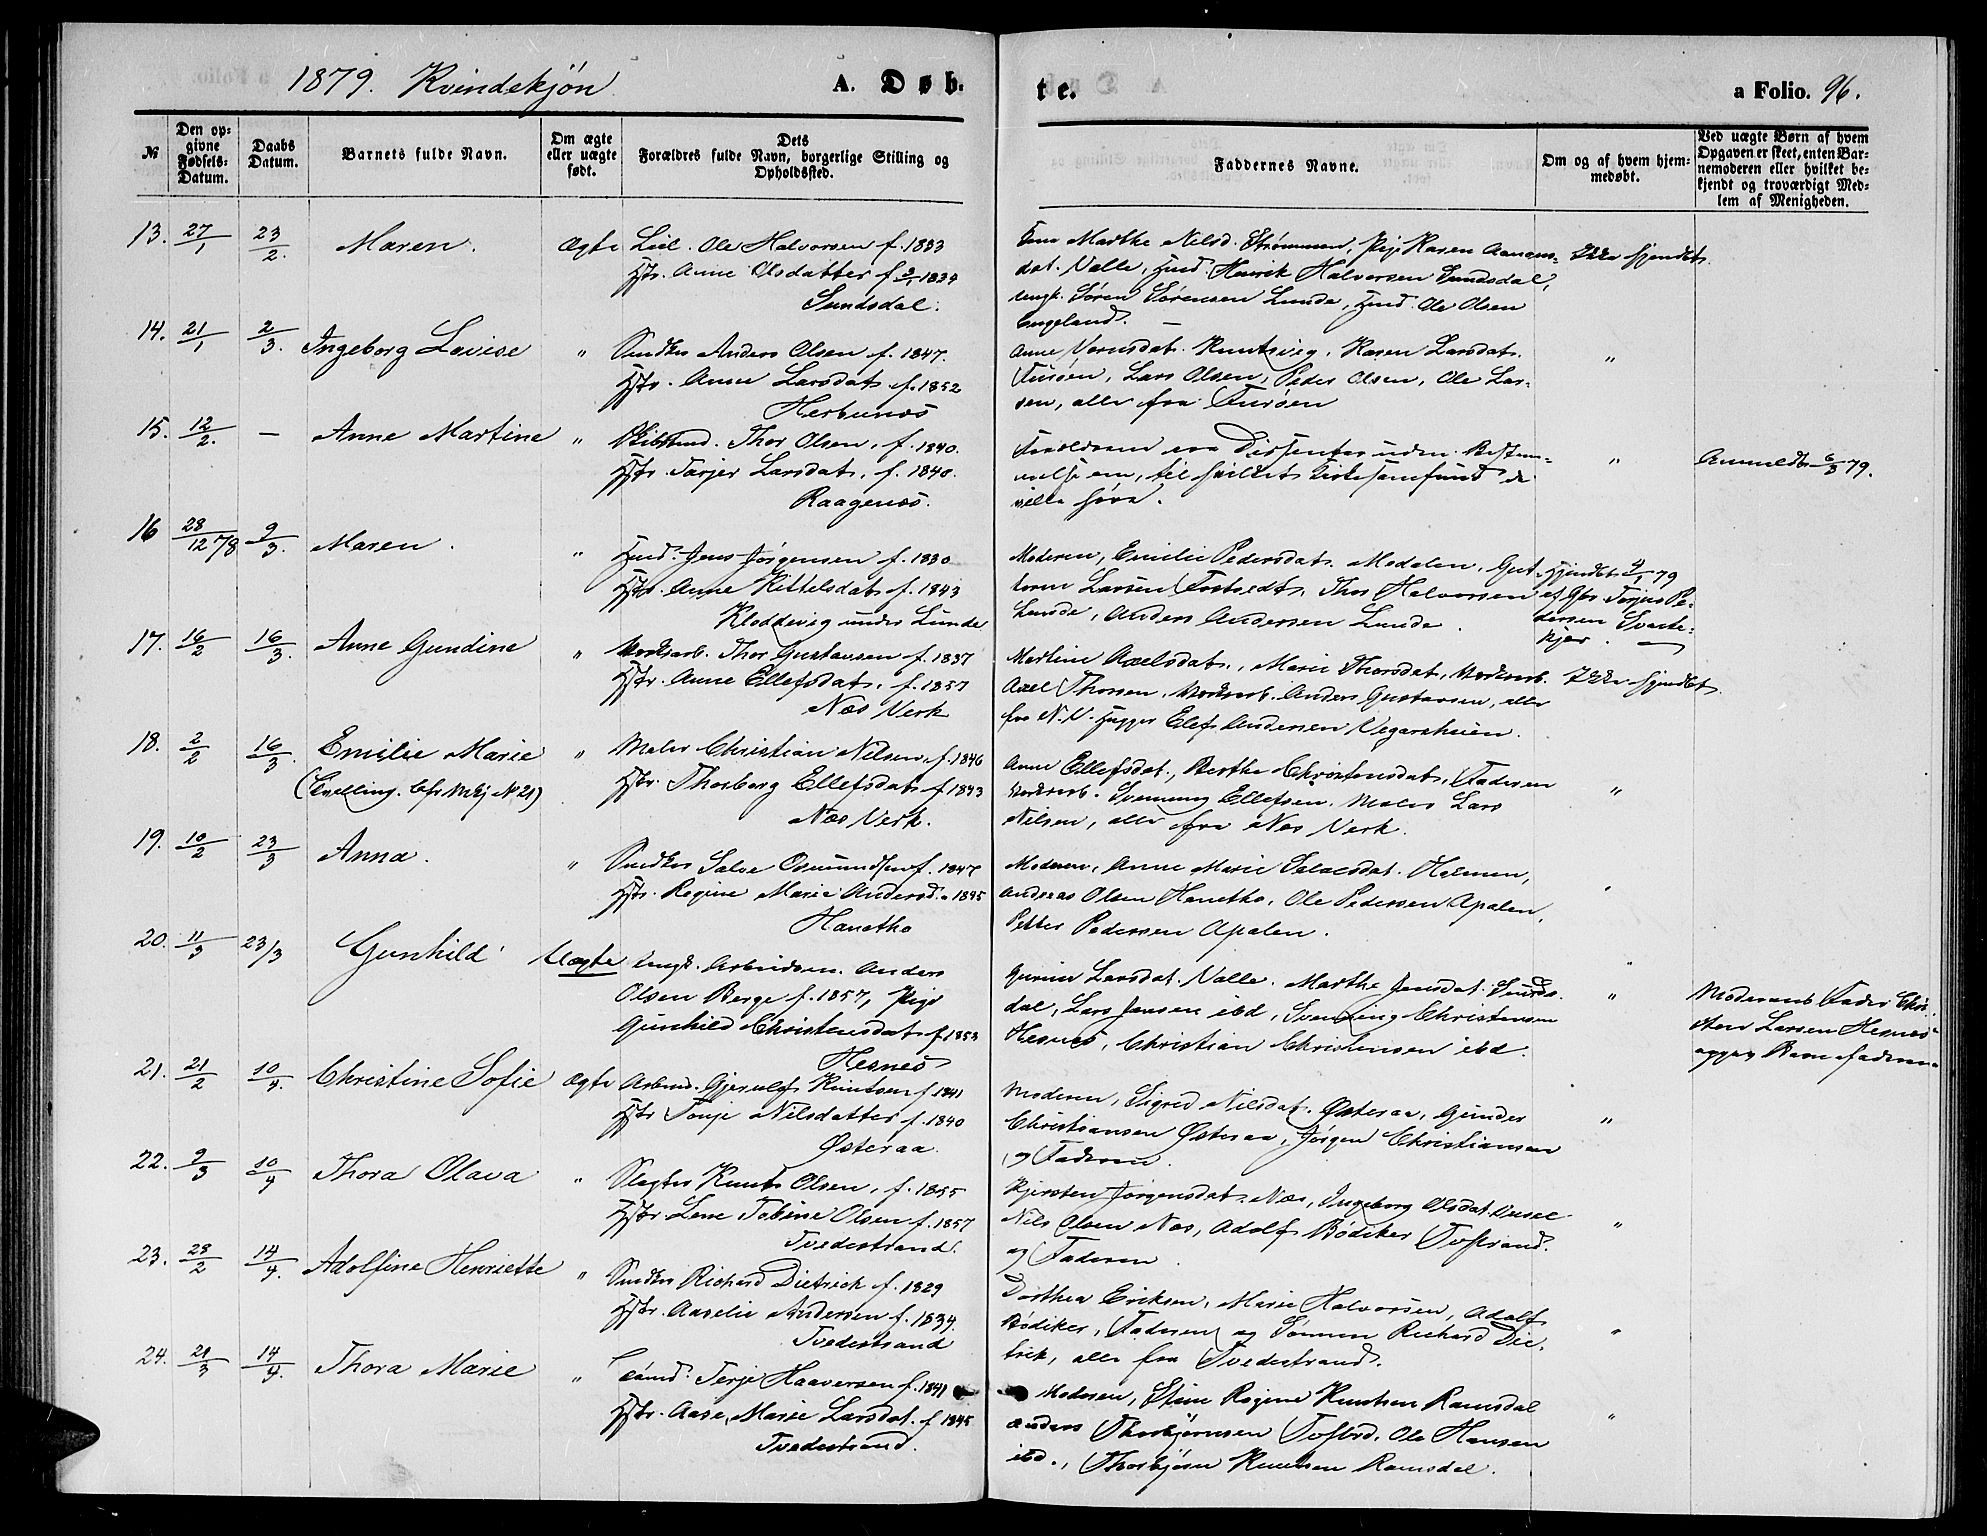 1879. Kvindekjøn
A. Døb-
te.
a Folio. 96.
№
Den op-
givne
Fødsels-
Datum.
Daabs
Datum.
Barnets fulde Navn.
Om ægte
eller uægte
født.
Dets
Forældres fulde Navn, borgerlige Stilling og
Opholdssted.
Faddernes Navne.
Om og af hvem hjem-
medøbt.
Ved uægte Børn af hvem
Opgaven er skeet, enten Bar-
nemoderen eller hvilket be-
kjendt og troværdigt Med-
lem af Menigheden.
13. 27/1 23/2. Maren. Ægte Leil. Ole Halvorsen f. 1833
Hstr. Anne Olsdatter f. 2/1 1834
Sundsdal.
Marthe Nilsd. Strømmen, Pige Karen Aanons-
dat. Valle, Hmd. Henrik Halvorsen Sundsdal,
Ungk. Søren Sørensen Lunde, Hmd. Ole Olsen
Engeland. —
Ikke hjemdøbt.
14. 21/1 2/3. Ingeborg Lovise " Snedker Anders Olsen f. 1847.
Hstr. Anne Larsdat. f. 1852
Hesbunæs
Anne Karen Larsdat.
Furøen, Lars Olsen, Peder Olsen, Ole Lar-
sen, alle fra Furøen
"
15. 12/2. — Anne Martine " Skibstmd. Thor Olsen, f. 1840.
Hstr. Tarjer Larsdat. f. 1840.
Raagenæs.
Forældrene ere Dissenter uden Bestem-
melse om, til hvilket Kirkesamfund de
ville høre.
"
Anmeldt 6/3 79.
16 28/12 78 9/3. Maren. " Hmd. Jens Jørgensen f. 1830
Hstr. Anne Kittelsdat. f. 1843
Kloddevig under Lunde
Moderen, Emilie Pedersdat. Modalen, Gut-
torm Larsen Fosstvedt, Thor Halvorsen
Lunde, Anders Andersen Lunde.
Hjemdøbt 9/1 79
af Gbr. Tarjus Pe-
dersen Svarte-
kjær. —
17. 16/2 16/3. Anne Gundine " Verksarb. Thor Gustavsen f. 1837
Hstr. Anne Ellefsdat. f. 1857
Næs Verk
Martine Axelsdat., Marie Thorsdat, Verksarb.
Axel Thorsen, Verksarb. Anders Gustavsen, alle
fra N. V. Hugger Elef Andersen Vegarsheien.
Ikke hjemdøbt.
18. 2/2 16/3. Emilie Marie " Maler Christian Nilsen, f. 1846
(Tvilling. Cfr. Mkj N 21)
Hstr. Thorborg Ellefsdat. f. 1843
Næs Verk.
Anne Ellefsdat., Berthe Christensdat., Faderen
Verksarb. Svenung Ellefsen, Maler Lars
Nilsen, alle fra Næs Verk.
"
19. 10/2 23/3 Anna. " Snedker Salve Osmundsen f. 1847
Hstr. Regine Marie Andersd. " 1845
Hanetho
Moderen, Anne Marie Salvesdat. Holmen,
Andreas Olsen Hanetho, Ole Pedersen Apalen,
Petter Pedersen Apalen.
"
20. 11/3 23/3 Gunhild Uægte Ungk. Arbeidsm. Anders
Olsen Berge f. 1857, Pige
Gunhild Christensdat. f. 1853
Hesnes
Gurine Larsdat. Valle. Marthe Jensdat. Sunds-
dal, Lars Jensen ibd, Svenung Christensen
Hesnes, Christian Christensen ibd.
"
Moderens Fader Chri-
sten Larsen Hesnes
opgav Barnefaderen
21. 21/2 10/4. Christine Sofie Ægte Arbmd. Gjerulf Knutsen f. 1841
Hstr Tonje Nilsdatter f. 1840
Østeraa.
Moderen, Sigrid Nilsdat. Østeraa, Gunder
Christiansen Østeraa, Jørgen Christiansen
og Faderen.
"
22. 9/3 10/4 Thora Olava " Slagter Knut Olsen, f. 1855
Hstr Lene Tobine Olsen f. 1857
Tvedestrand.
Kjersten Jørgensdat. Næs, Ingeborg Olsdat.
Nils Olsen Næs, Adolf Bødiker Tvstrand.
og Faderen.
"
23. 28/2 14/4. Adolfine Henriette " Snedker Richard Dietrich f. 1829
Hstr. Aaselie Andersen f. 1834.
Tvedestrand
Dorthea Eriksen, Marie Halvorsen, Adolf
Bødiker, Faderen og Sønnen Richard Die-
trik, alle fra Tvedestrand.
"
24. 21/3 14/4. Thora Marie " Sømd. Terje Haaversen f. 1841
Hstr. Aase Marie Larsdat. f. 1845
Tvedestrand.
Moderen, Stine Regine Knutsen Ramsdal
Anders Thorbjørnsen Tvstrd. Ole Hansen
ibd., Thorbjørn Knutsen Ramsdal.
"